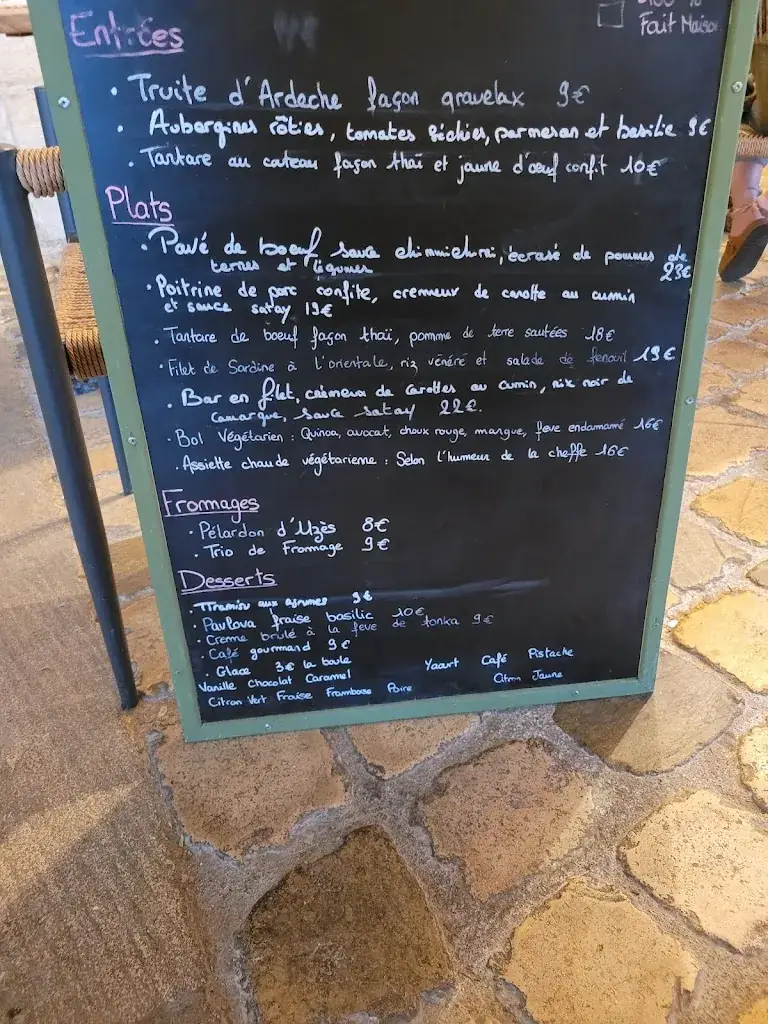 100 %
Fait Maison
Entrées
• Truite d'Ardeche façon gravelax 9€
• Aubergines rôties, tomates séchées, parmesan et basilic 9€
• Tartare au couteau façon thaï et jaune d'œuf confit 10€
Plats
• Pavé de boeuf, sauce chimichurri, écrasé de pommes de
terres et légumes 23€
• Poitrine de porc confite, cremeux de carotte au cumin
et sauce satay 19€
• Tartare de boeuf façon thaï, pomme de terre sautées 18€
• Filet de Sardine à l'orientale, riz vénéré et salade de fenouil 19€
• Bar en filet, crémeux de carottes au cumin, riz noir de
Camargue, sauce satay 22€.
• Bol Végétarien : Quinoa, avocat, choux rouge, mangue, feve endamamé 16€
• Assiette chaude végétarienne : Selon l'humeur de la cheffe 16€
Fromages
• Pélardon d'Uzès 8€
• Trio de Fromage 9€
Desserts
• Tiramisu aux agrumes 9€
• Pavlova fraise basilic 10€
• Creme brulé à la feve de tonka 9€
• Café gourmand 9€
• Glace 3€ la boule
Vanille Chocolat Caramel Yaourt Café Pistache
Citron Vert Fraise Framboise Poire Citron Jaune